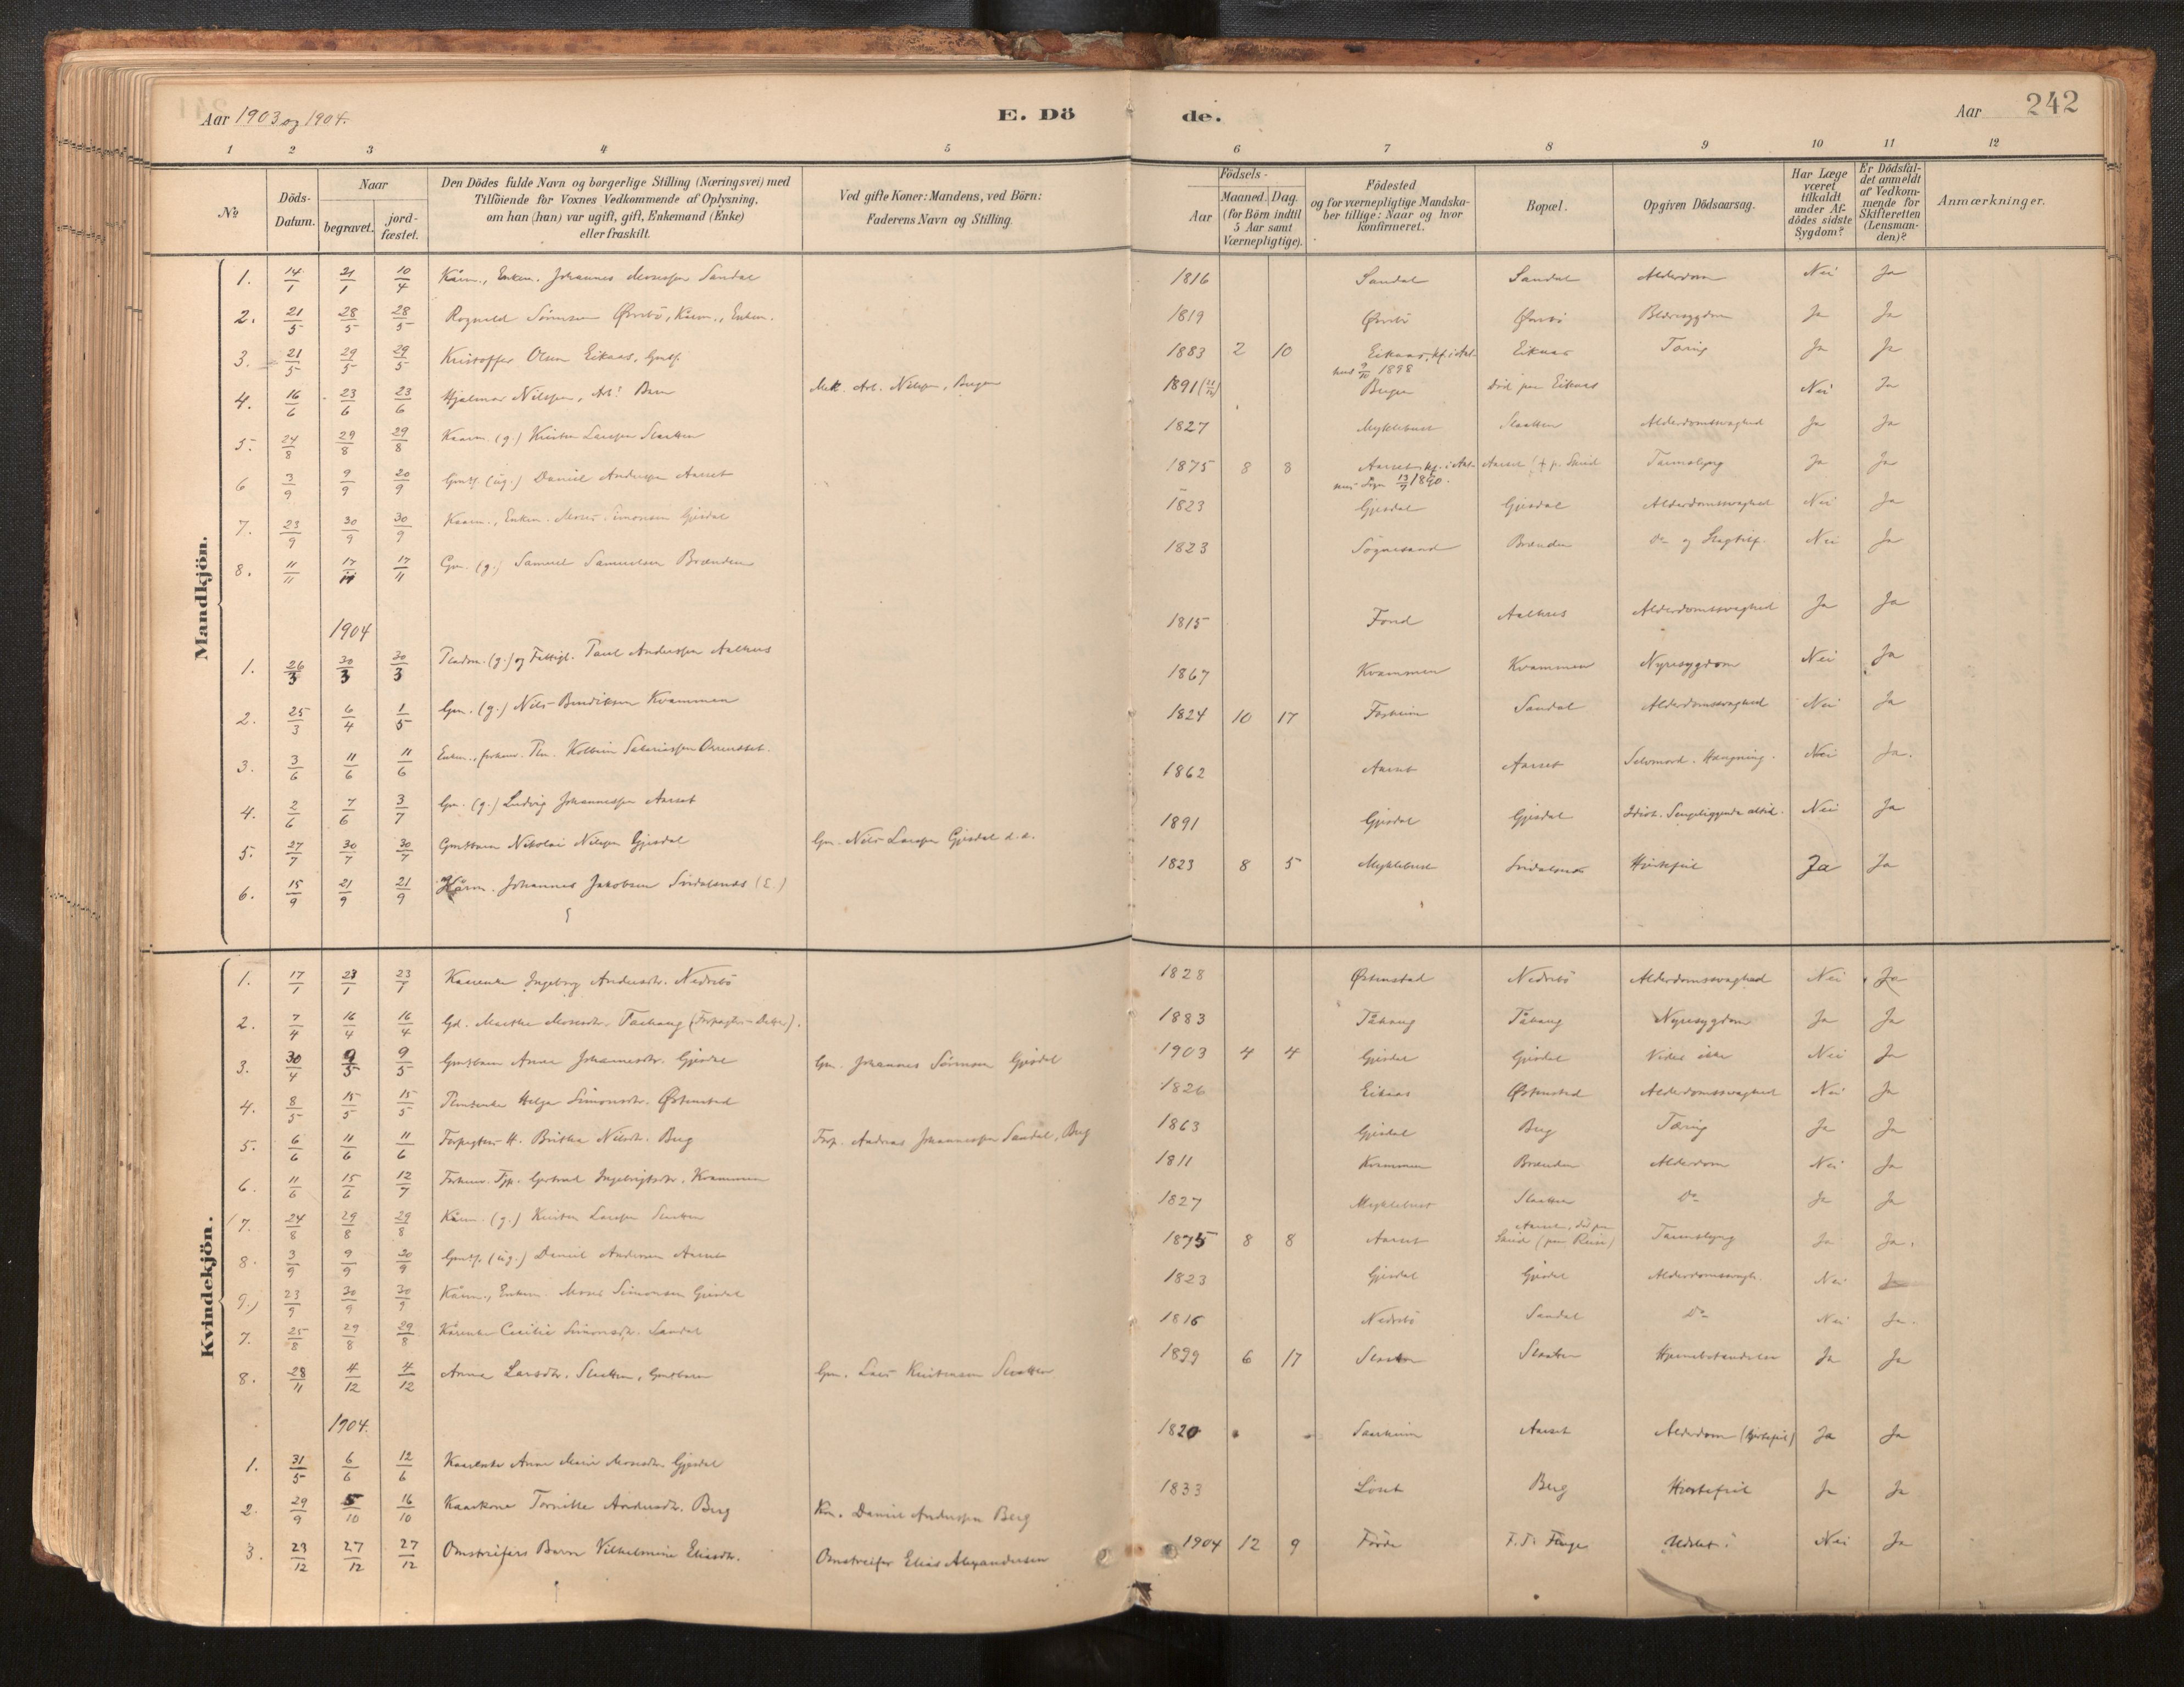 Aar 1903 og 1904.
E. Dö
de.
Aar
242
1 2 3 4 5 6 7 8 9 10 11 12
№
Döds-Datum.
Naar
begravet.
jord-fæstet.
Den Dödes fulde Navn og borgerlige Stilling (Næringsvei) med
Tilföiende for Voxnes Vedkommende af Oplysning,
om han (hun) var ugift, gift, Enkemand (Enke)
eller fraskilt.
Ved gifte Koner: Mandens, ved Börn:
Faderens Navn og Stilling.
Födsels-
Aar
Maaned. Dag.
(for Börn indtil
5 Aar samt
Værnepligtige).
Födested
og for værnepligtige Mandska-
ber tillige: Naar og hvor
konfirmeret.
Bopæl.
Opgiven Dödsaarsag.
Har Læge
været
tilkaldt
under Af-
dödes sidste
Sygdom?
Er Dödsfal-
det anmeldt
af Vedkom-
mende for
Skifteretten
(Lensman-
den)?
Anmærkninger.
Mandkjön.
1. 14/1 21/1 10/4 Kårm., Enkem. Johannes Mosessen Sandal 1816 Sandal Sandal Alderdom Nei Ja
2. 21/5 28/5 28/5 Rognald Sörensen Øvrebö, Kårm., Enkem. 1819 Øvrebö Øvrebö Blæresygdom Ja Ja
3. 21/5 29/5 29/5 Kristoffer Olsen Eikaas, Gmdsf. 1883 2 10 Eikaas, kf. i Aal-
hus 1898 Eikaas Tæring Ja Ja
4. 16/6 23/6 23/6 Hjalmar Nilssen, Arb. Barn Mek. Arb. Nilssen, Bergen 1891 Bergen död paa Eikaas Nei Ja
5. 24/8 29/8 29/8 Kaarm. (g.) Kristen Larssen Slaatten 1827 Myklebust Slaatten Alderdomssvaghed Ja Ja
6 3/9 9/9 20/9 Gmdsf. (ug.) Daniel Anderssen Aarset 1875 8 8 Aarset, kf. i Aal-
hus Sogn 1890. Aarset Tarmslyng Ja Ja
7. 23/9 30/9 30/9 Kaarm., Enkem. Moses Simonsen Gjesdal 1823 Gjesdal Gjesdal Alderdomssvaghed Nei Ja
8. 11/11 17/11 17/11 Gm. (g.) Samuel Samuelsen Brænden 1823 Sögnesand Brænden Do og Slagtilf. Nei Ja
1904
1. 26/3 30/3 30/3 Pladsm. (g.) og Fattigl. Paul Anderssen Aalhus 1815 Fond Aalhus Alderdomssvaghed Ja Ja
2. 25/3 6/4 1/5 Gm. (g.) Nils Bendiksen Kvammen 1867 Kvammen Kvammen Nyresygdom Nei Ja
3. 3/6 11/6 11/6 Enkem., forhenv. Plm. Kolbein 1824 10 17 Sandal Alderdomssvaghed Nei Ja
4. 2/6 7/6 3/7 Gm. (g.) Ludvig Johannessen Aarset 1862 Aarset Aarset Selvmord. Hængning. Nei Ja.
5. 27/7 30/7 30/7 Gmdsbarn Nikolai Nilssen Gjesdal Gm. Nils Larssen Gjesdal 1891 Gjesdal Gjesdal Idiot. Sengeliggende altid. Nei Ja
6. 15/9 21/9 21/9 Kårm. Johannes Jakobsen Svidalsnæs (E.) 1823 8 5 Myklebust Svidalsnæs Hjertefeil Ja Ja
Kvindekjön.
1. 17/1 23/1 23/1 Kaarenke Ingeborg Andersdtr. Nedrebö 1828 Østenstad Nedrebö Alderdomssvaghed Nei Ja
2. 7/4 16/4 16/4 Marthe Mosesdtr. Taahaug (Forpagter-Datter). 1883 Tåhaug Tåhaug Nyresygdom Ja Ja
3. 30/4 9/5 9/5 Gmdsbarn Anna Johannesdtr. Gjesdal Gm. Johannes Sörensen Gjesdal 1903 4 4 Gjesdal Gjesdal Vides ikke Nei Ja
4. 8/5 15/5 15/5 Plmdsenke Helga Simonsdtr. Østenstad 1826 Eikaas Østenstad Alderdomssvaghed Nei Ja
5. 6/6 11/6 11/6 Forpagters H. Brithe Nilsdtr. Berg Forp. Andreas Johannessen Sandal, Berg 1863 Gjesdal Berg Tæring Ja Ja
6. 11/6 15/6 12/7 Forhenv. Gjertrud Ingebrigtsdtr. Kvammen 1811 Kvammen Brænden Alderdom Nei Ja
7. 24/8 29/8 29/8 Kårm. (g.) Kristen Larssen Slaatten 1827 Myklebust Slaatten Do Ja Ja
8. 3/9 9/9 20/9 Gmdsf. (ug.) Daniel Andersen Aarset 1875 8 8 Aarset Aarset, död paa
Skeid (paa Reise) Tarmslyng Ja Ja.
9.) 23/9 30/9 30/9 Kårm., Enkem. Moses Simonsen Gjesdal 1823 Gjesdal Gjesdal Alderdomssvagh. Nei Ja
7. 25/8 29/8 29/8 Kårenke Cecilie Simonsdtr. Sandal 1816 Nedrebö Sandal Do Nei Ja.
8. 28/11 4/12 4/12 Anna Larsdtr. Slaatten, Gmdsbarn Gm. Lars Kristensen Slaatten 1899 6 17 Slaatten Slaatten Hjernebetændelse Ja Ja
1904.
1. 31/5 6/6 12/6 Kaarenke Anne Marie Mosesdtr. Gjesdal 1820 Saarheim Aarset Alderdom (Hjertefeil) Ja Ja
2. 29/9 5/10 16/10 Kaarkone Tornille Andersdtr. Berg Km. Daniel Anderssen Berg 1833 Löset Berg Hjertefeil Ja Ja
3. 23/12 27/12 27/12 Omstreifers Barn Vilhelmine Eliasdtr. Omstreifer Elias Alexandersen 1904 12 9 Förde Nei Ja